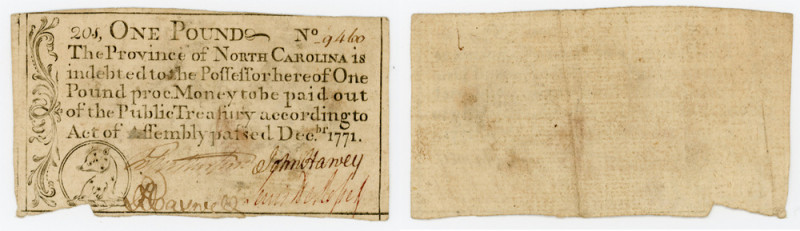 20s, ONE POUND No. 9460
The Province of NORTH CAROLINA is
indebted to the Poſſeſſor hereof One
Pound proc. Money to be paid out
of the Public Treaſury according to
Act of Aſſembly paſsed Dec.br 1771.
John Harvey